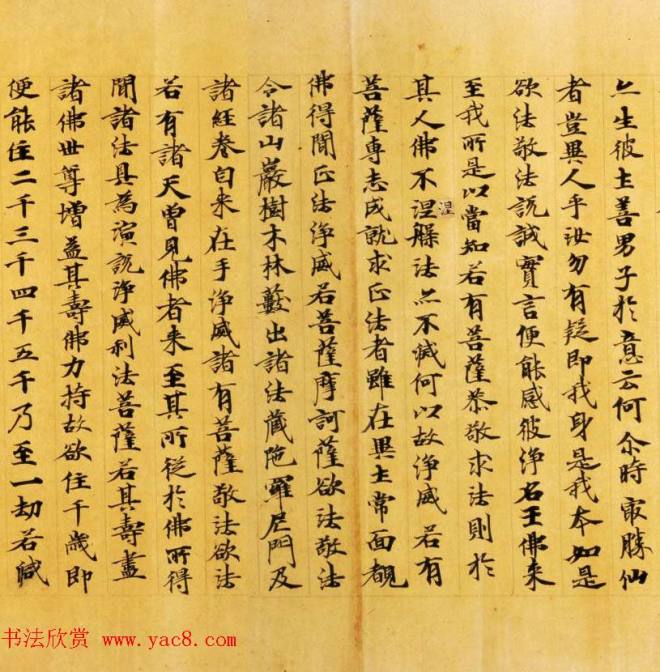 亦生彼土善男子於意云何尒時冣勝仙
者豈異人乎汝勿有疑即我身是我本如是
欲法敬法説誠實言便能感彼淨名王佛来
至我所是以當知若有菩薩恭敬求法則於
涅
其人佛不涅槃法亦不滅何以故淨威若有
菩薩專志成就求正法者雖在異土常面覩
佛得聞正法淨威若菩薩摩訶薩欲法敬法
令諸山巖樹木林藪出諸法藏陁羅尼門及
諸経卷自来在手淨威諸有菩薩敬法欲法
若有諸天曽見佛者来至其所従於佛所得
聞諸法具為演説淨威利法菩薩若其壽盡
諸佛世尊増益其壽佛力持故欲住千歳即
便能住二千三千四千五千乃至一劫若減
书法欣赏 www.yac8.com